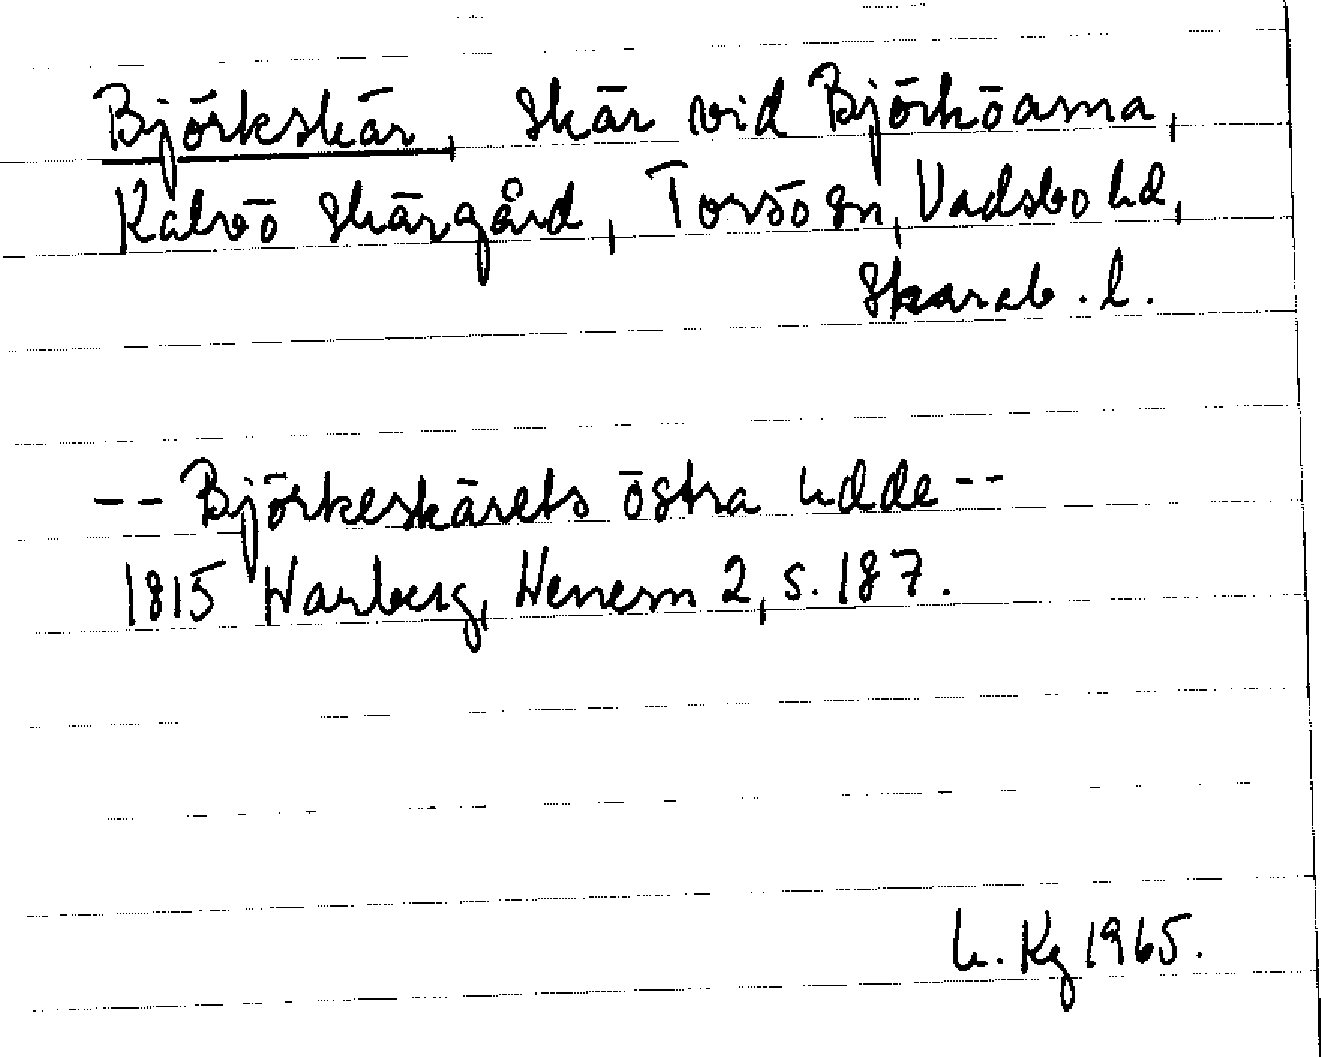 Björkskär, skär vid Björköarna,
Kalvö skärgård, Torsö sn, Vadsbo hd,
Skarab. l.
-- Björkeskärets östra udde --
1815 Warberg, Wenern 2, s. 187.
u. Kg 1965.